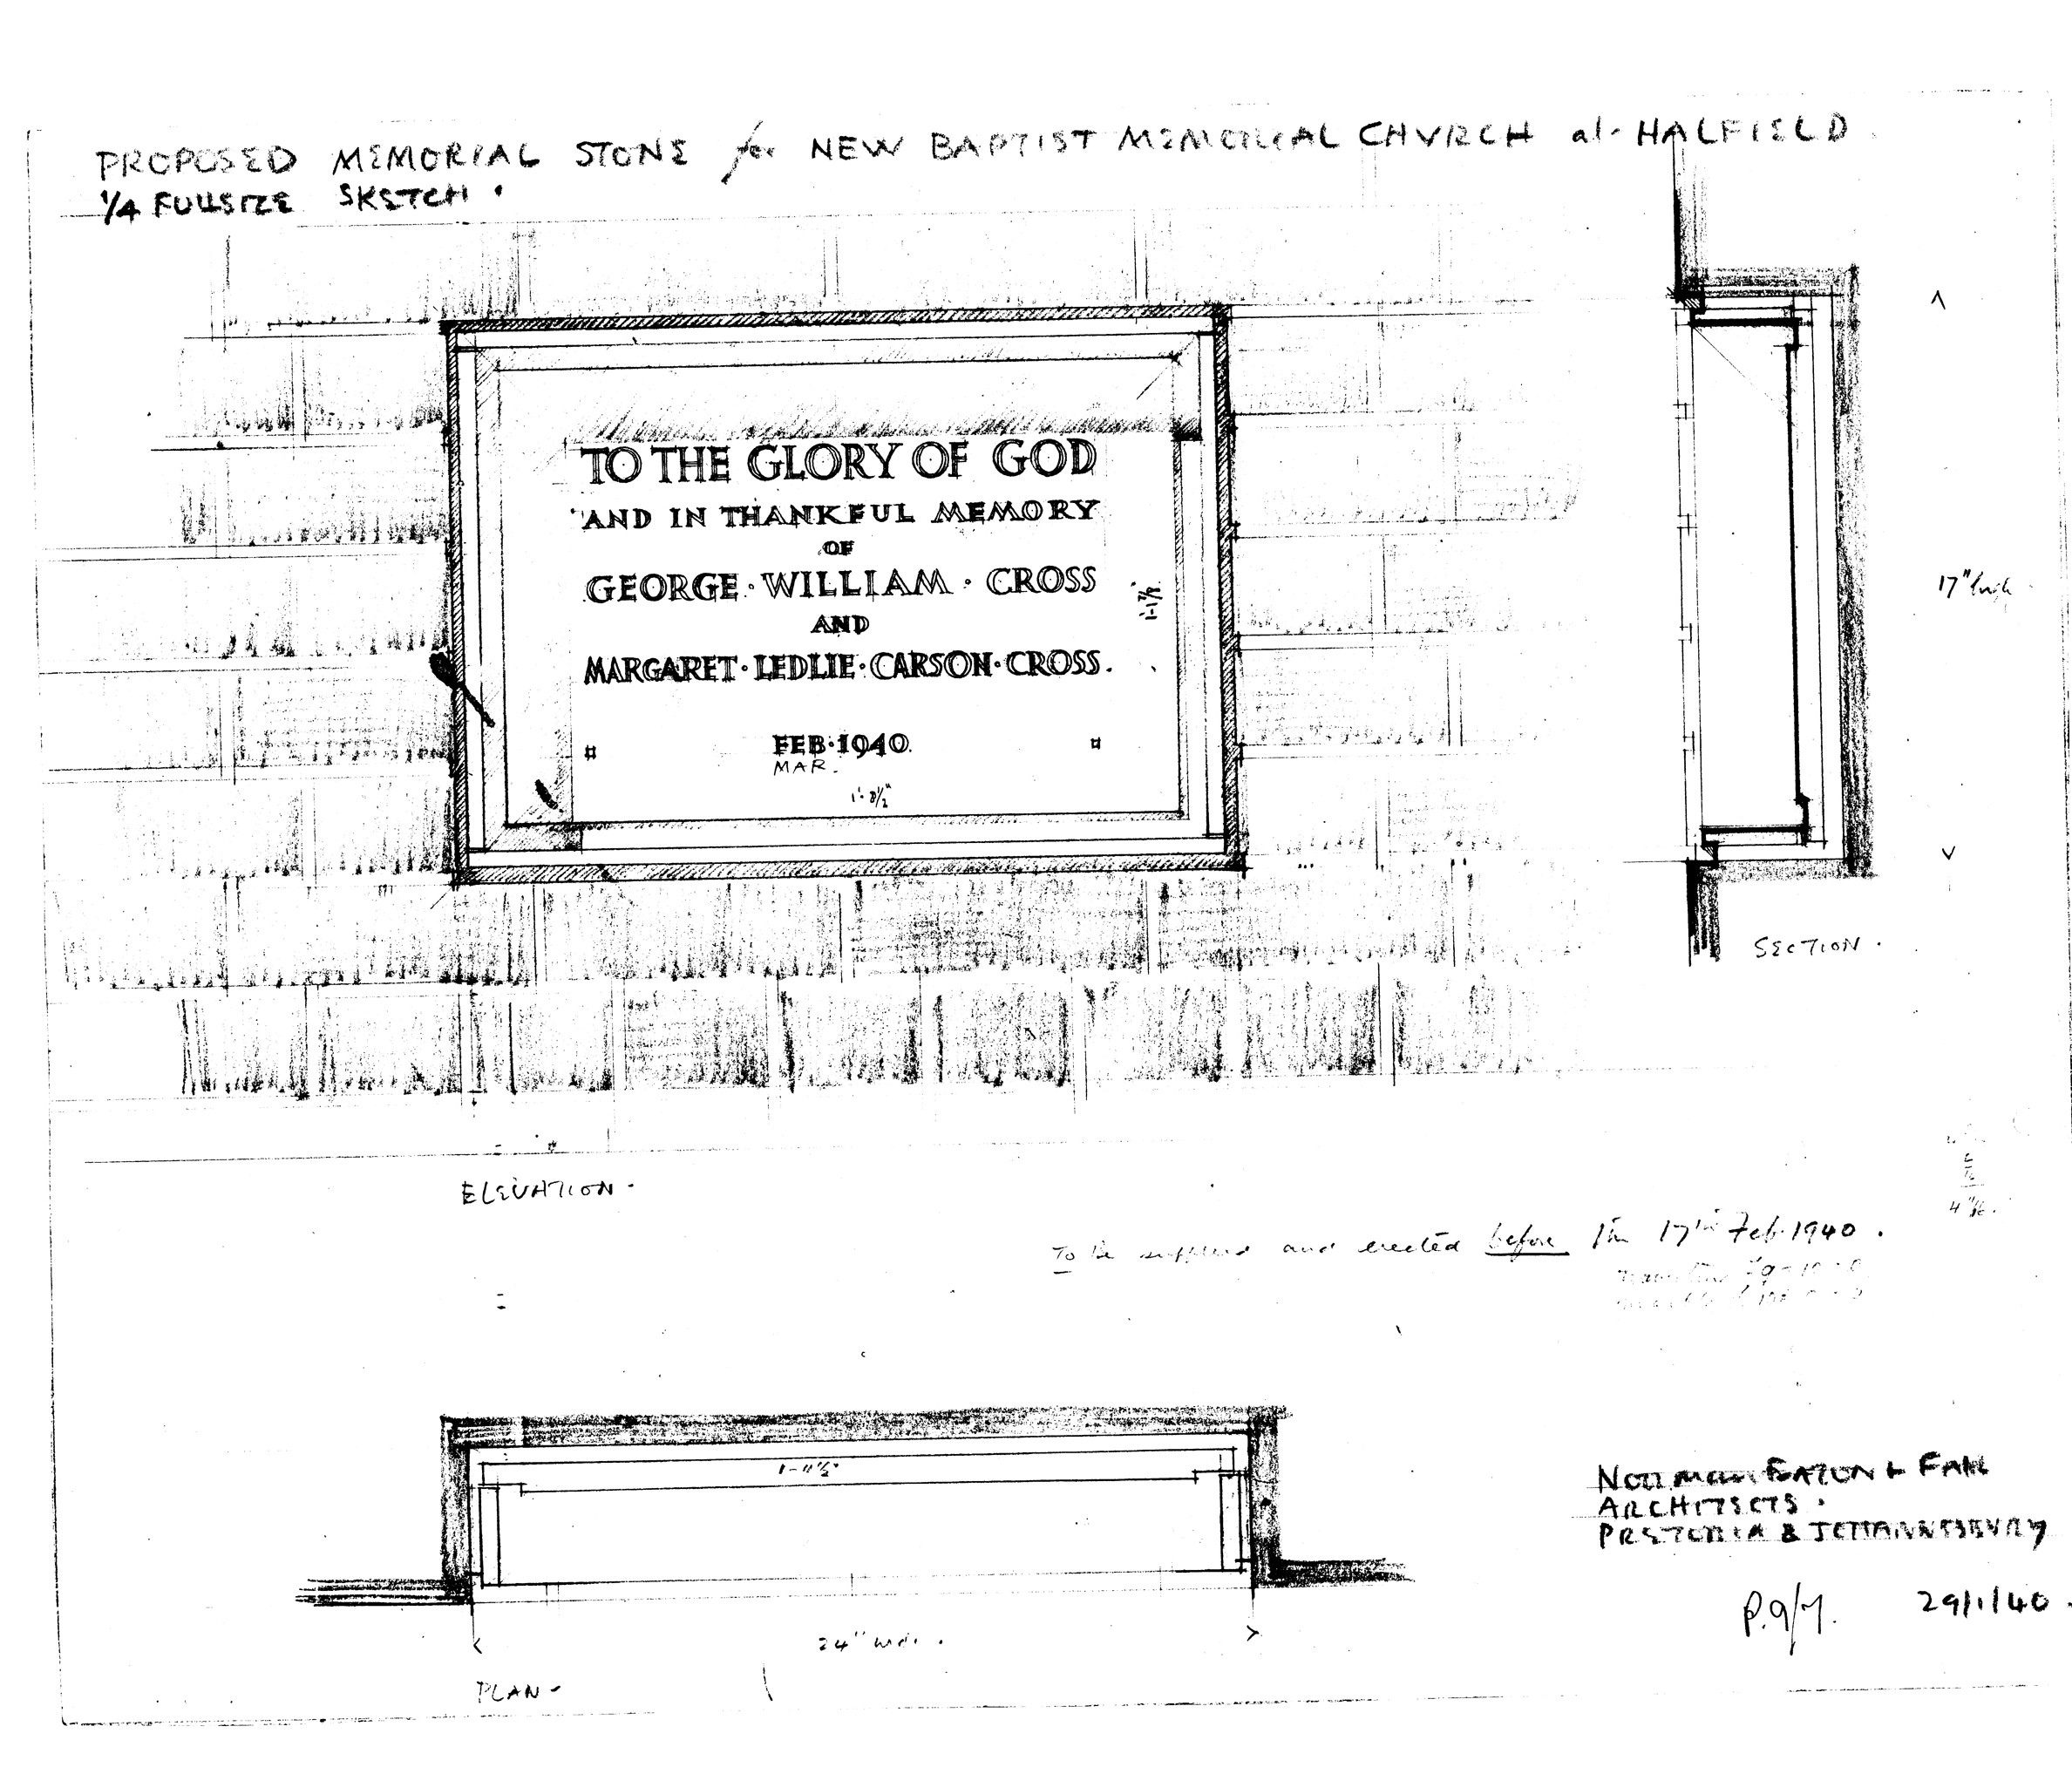 PROPOSED MEMORIAL STONE for NEW BAPTIST MEMORIAL CHVRCH at HALFIELD
1/4 FULLSIZE SKETCH.
TO THE GLORY OF GOD
AND IN THANKFUL MEMORY
OF
GEORGE · WILLIAM · CROSS
AND
MARGARET · LEDLIE · CARSON · CROSS.
FEB · 1940
MAR.
1'-8½"
1'-1⅞"
17" high
SECTION.
ELEVATION.
To be supplied and erected before the 17th Feb. 1940.
1-11½"
24" wide.
PLAN.
Norman EATON &
ARCHITECTS.
PRETORIA & JOHANNESBVRG
29/1/40.